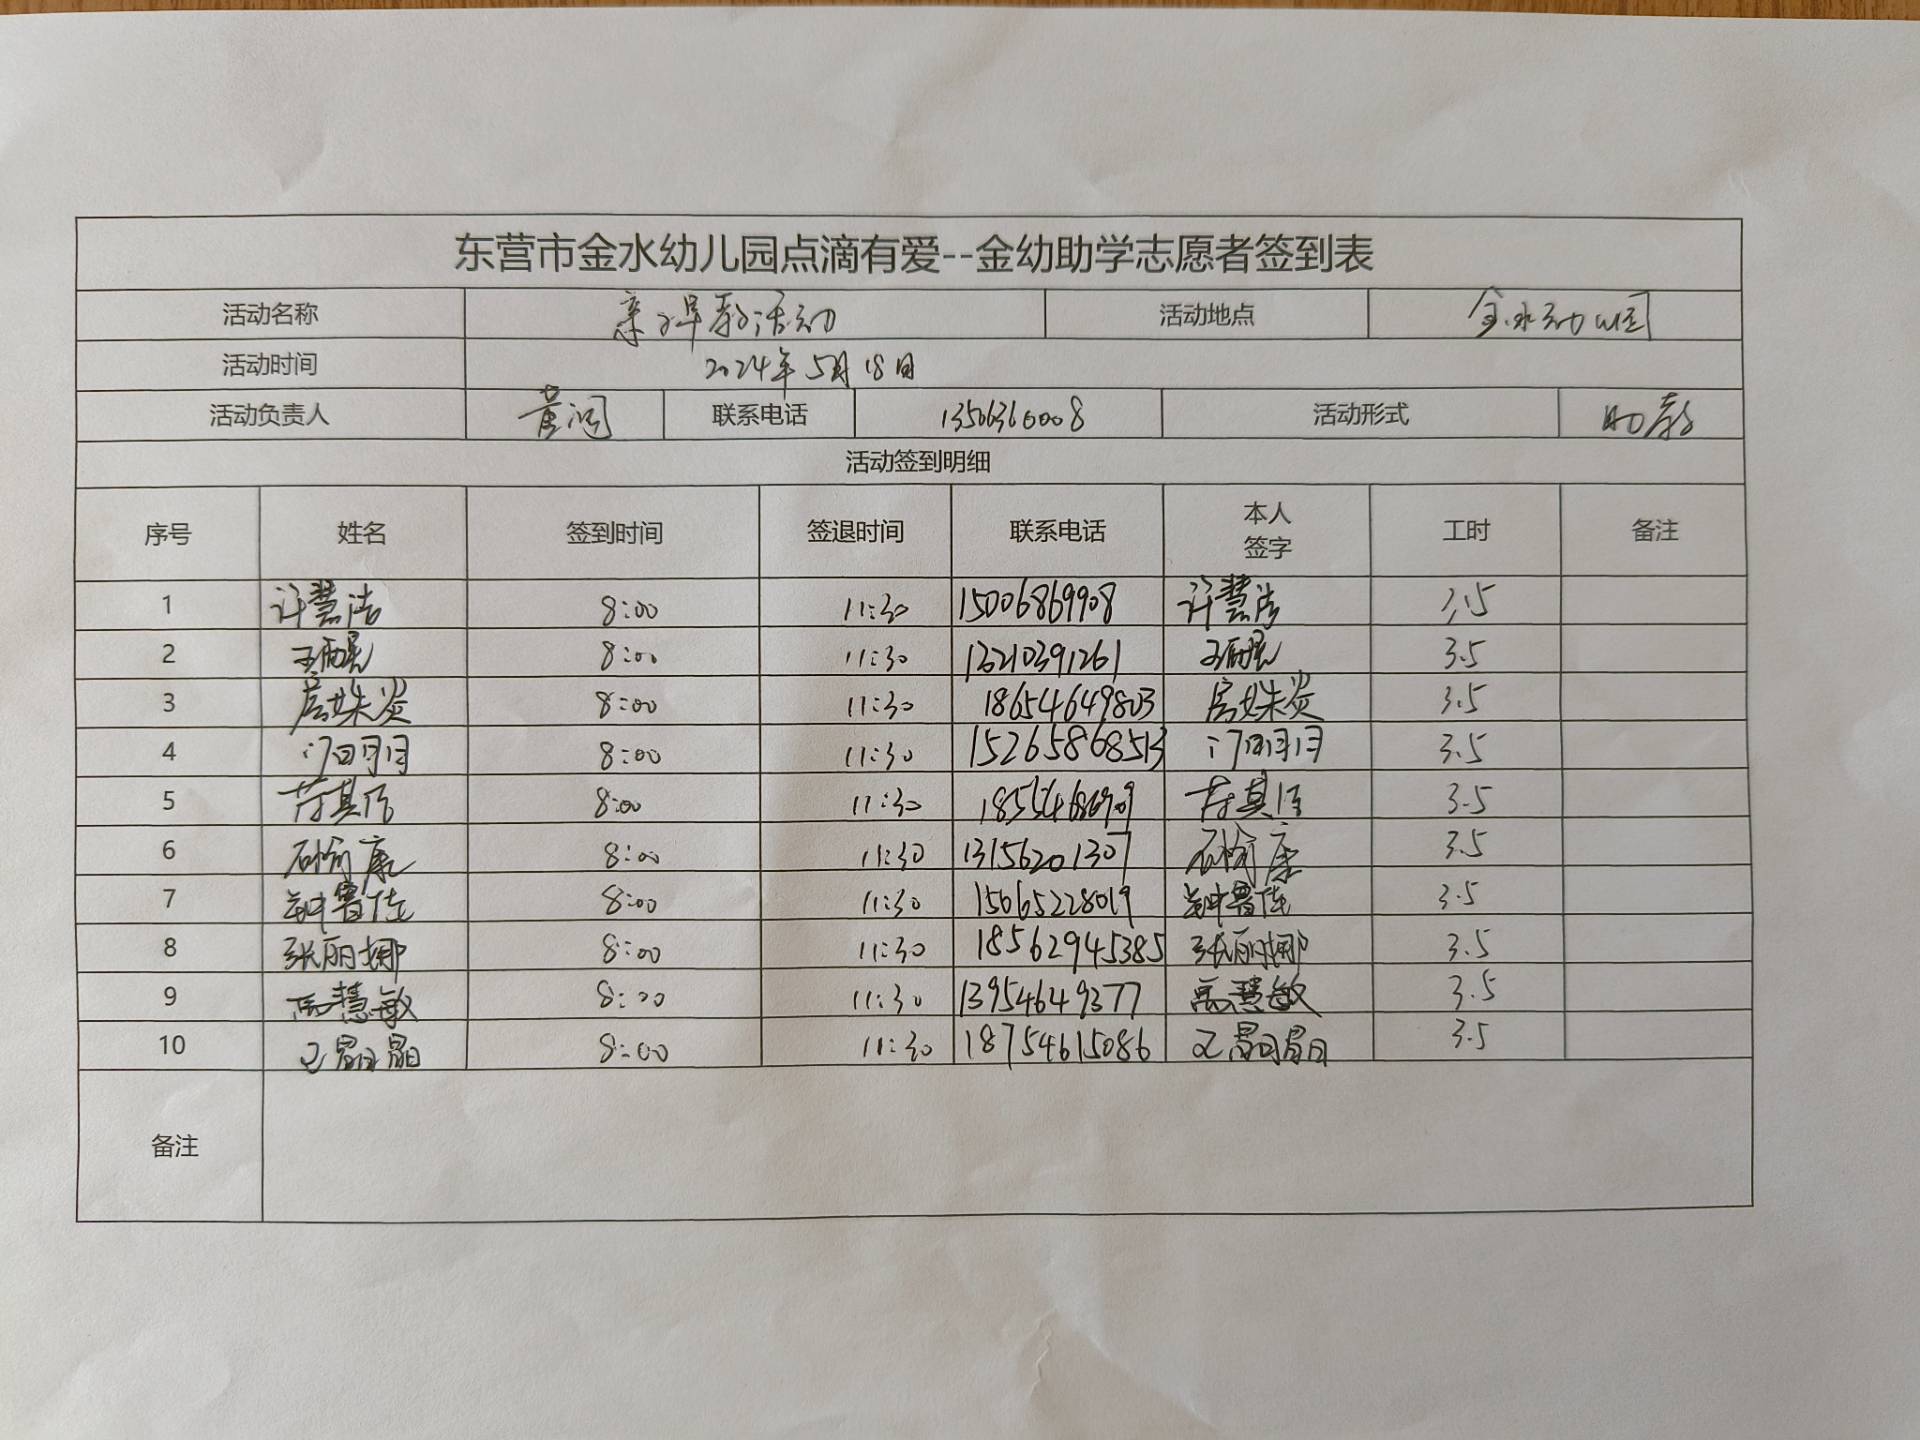 东营市金水幼儿园点滴有爱--金幼助学志愿者签到表
活动名称 亲子早教活动 活动地点 金水幼儿园
活动时间 2024年5月18日
活动负责人 黄润 联系电话 13506360008 活动形式 助教
活动签到明细
序号 姓名 签到时间 签退时间 联系电话 本人签字 工时 备注
1 许慧洁 8:00 11:30 15006869908 许慧洁 3.5
2 8:00 11:30 13210391261 3.5
3 房姝炎 8:00 11:30 18654649803 房姝炎 3.5
4 门明月 8:00 11:30 15265868513 门明月 3.5
5 8:00 11:30 3.5
6 8:00 11:30 13156201307 3.5
7 钟鲁佳 8:00 11:30 15065228019 钟鲁佳 3.5
8 张丽娜 8:00 11:30 18562945385 张丽娜 3.5
9 高慧敏 8:00 11:30 13954649377 高慧敏 3.5
10 王晶晶 8:00 11:30 18754615086 王晶晶 3.5
备注